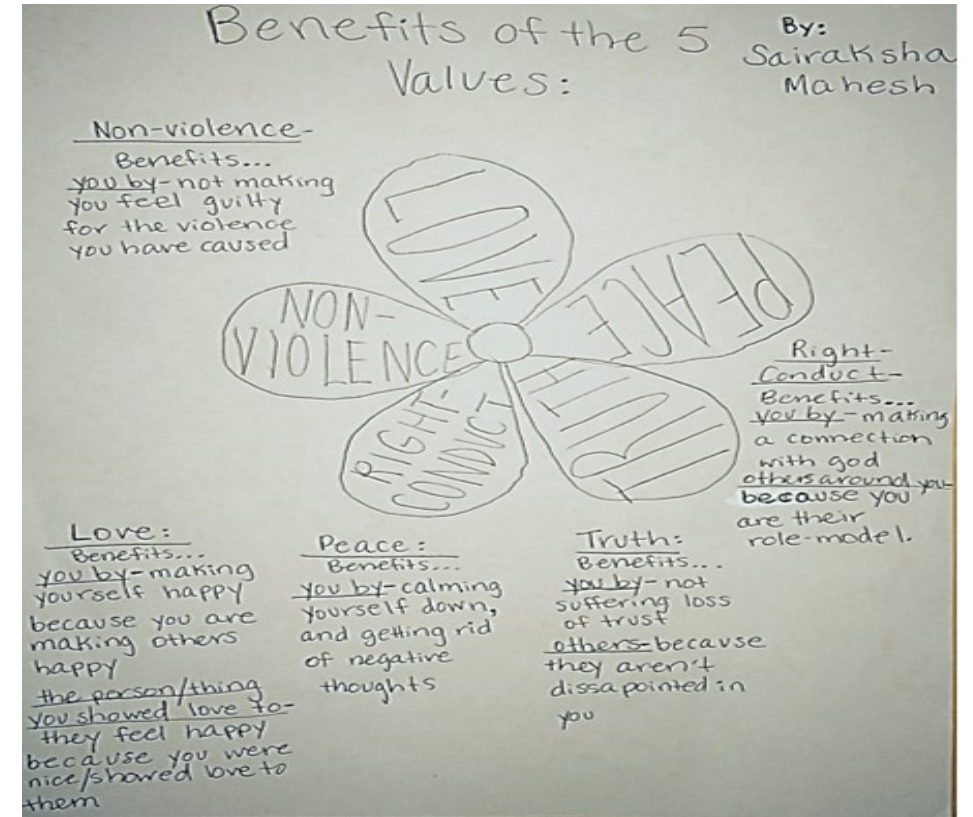 Benefits of the 5
Values:
By:
Sairaksha
Mahesh
Non-violence-
Benefits...
you by-not making
you feel guilty
for the violence
you have caused
LOVE
PEACE
NON-
VIOLENCE
RIGHT-
CONDUCT
TRUTH
Right-
Conduct-
Benefits...
you by-making
a connection
with god
others around you-
because you
are their
role-model.
Love:
Benefits...
you by-making
yourself happy
because you are
making others
happy
the person/thing
you showed love to-
they feel happy
because you were
nice/showed love to
them
Peace:
Benefits...
you by-calming
yourself down,
and getting rid
of negative
thoughts
Truth:
Benefits...
you by-not
suffering loss
of trust
others-because
they aren't
dissapointed in
you